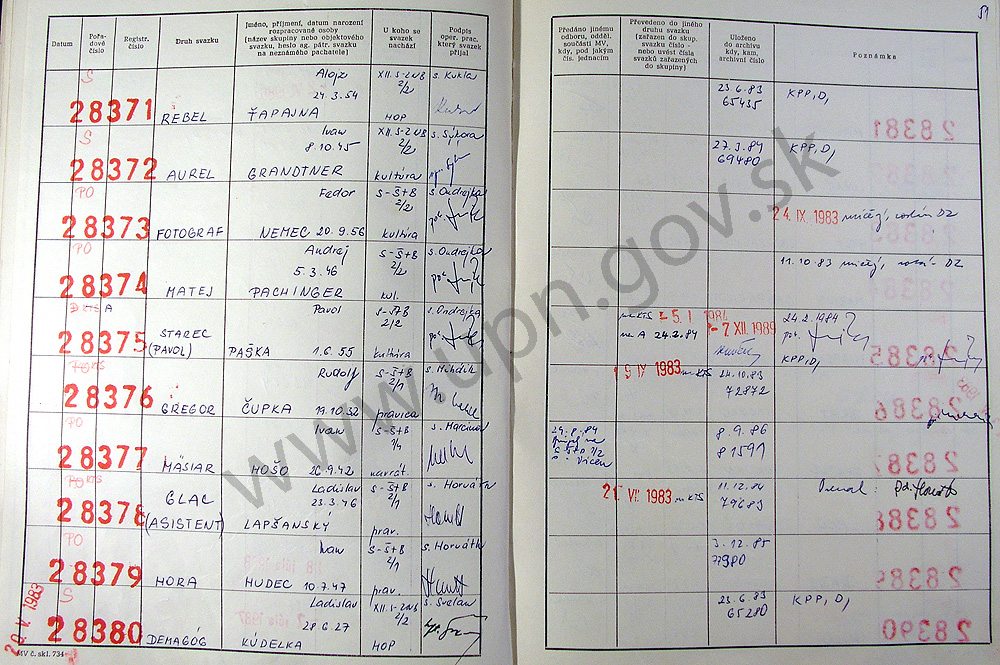 Datum
Pořa-
dové
číslo
Registr.
číslo
Druh svazku
Jméno, příjmení, datum narození
rozpracované osoby
(název skupiny nebo objektového
svazku, heslo ag. pátr. svazku
na neznámého pachatele)
U koho se
svazek
nachází
Podpis
oper. prac.
který svazek
přijal
Předáno jinému
odboru, odděl.
součásti MV,
kdy, pod jakým
čís. jednacím
Převedeno do jiného
druhu svazku
(zařazen do skup.
svazku číslo -
nebo uvést čísla
svazků zařazených
do skupiny)
Uloženo
do archivu
kdy, kam,
archivní číslo
Poznámka
51
S
28371
REBEL
Alojz
24.3.54
ŤAPAJNA
XII. S-ZNB
2/2
HOP
s. Kukla
23.6.83
65435
KPP, D,
S
28372
AUREL
Ivan
8.10.45
GRANDTNER
XII. S-ZNB
2/2
kultúra
s. Sýkora
27.3.84
69480
KPP, D,
PO
28373
FOTOGRAF
Fedor
NEMEC 20.9.56
S-Š+B
2/2
kultúra
s. Ondrejka
24. IX. 1983
PO
28374
MATEJ
Andrej
5.3.46
PACHINGER
S-Š+B
2/2
kul.
s. Ondrejka
11.10.83
KTS A
28375
STAREC
(PAVOL)
Pavol
PAŠKA 1.6.55
S-Š+B
2/2
kultúra
s. Ondrejka
na KTS - 5. I. 1984
na A 24.2.84
- 7. XII. 1989
24.2.1984
KPP, D,
PO KTS
28376
GREGOR
Rudolf
ČUPKA 19.10.32
S-Š+B
2/1
pravica
15 IX 1983 na KTS
24.10.83
72872
28377
MÄSIAR
Ivan
HOŠO 26.9.42
S-Š+B
1/4
navrát.
s. Marcinov
8.9.86
81591
PO KTS
28378
GLAC
(ASISTENT)
Ladislav
23.3.46
LAPŠANSKÝ
S-Š+B
2/1
prav.
s. Horváth
21. VI. 1983 na KTS
11.12.84
79683
PO
28379
HORA
Ivan
HUDEC 10.7.47
S-Š+B
2/1
prav.
s. Horváth
3.12.85
77980
20. V. 1983
S
28380
DEMAGÓG
Ladislav
28.6.27
KÚDELKA
XII. S-ZNB
2/2
HOP
23.6.83
65280
KPP, D,
MV č. skl. 734
www.upn.gov.sk